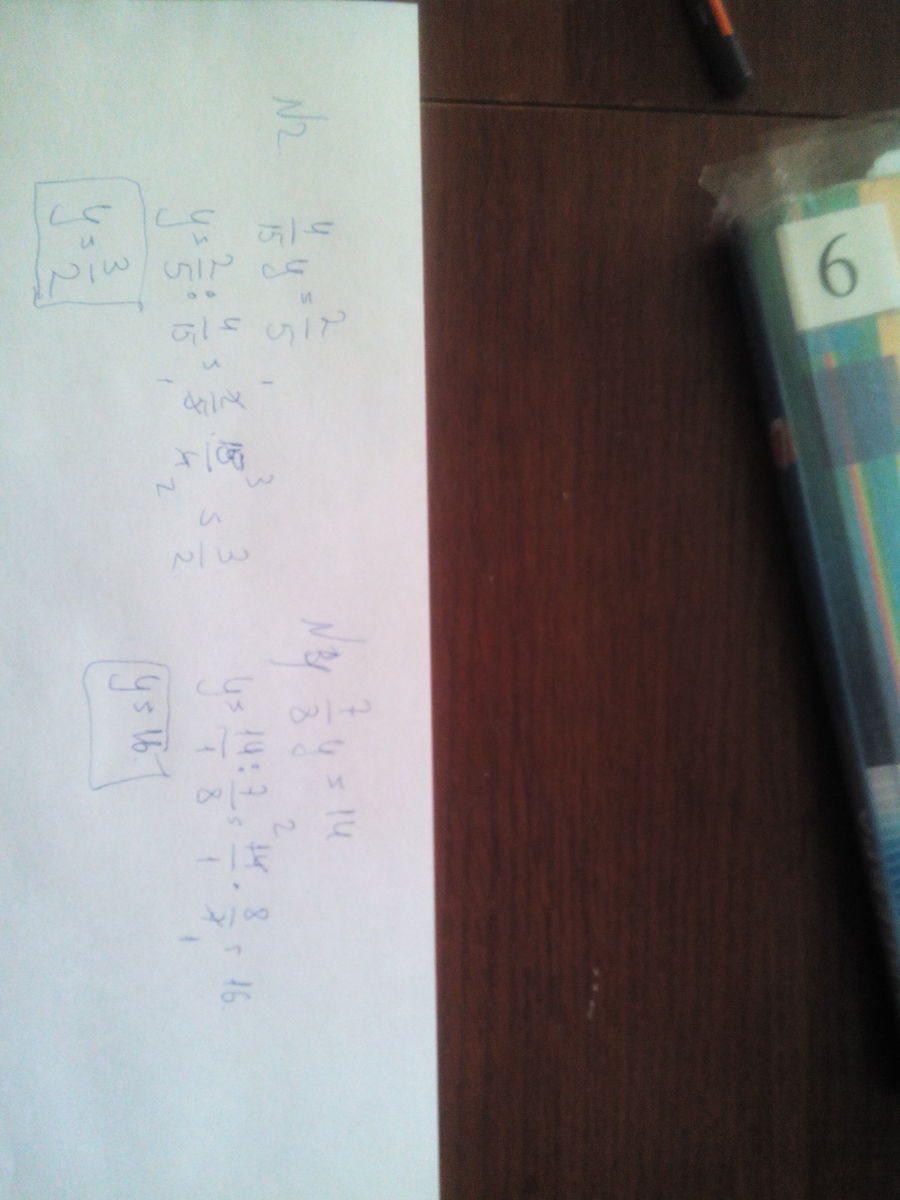 N2
4/15 y = 2/5
y = 2/5 : 4/15 = 2/5 · 15/4 = 3/2
1 3
1 2
y = 3/2
7/8 y = 14
y = 14/1 : 7/8 = 14/1 · 8/7 = 16.
2
1
y = 16.
6